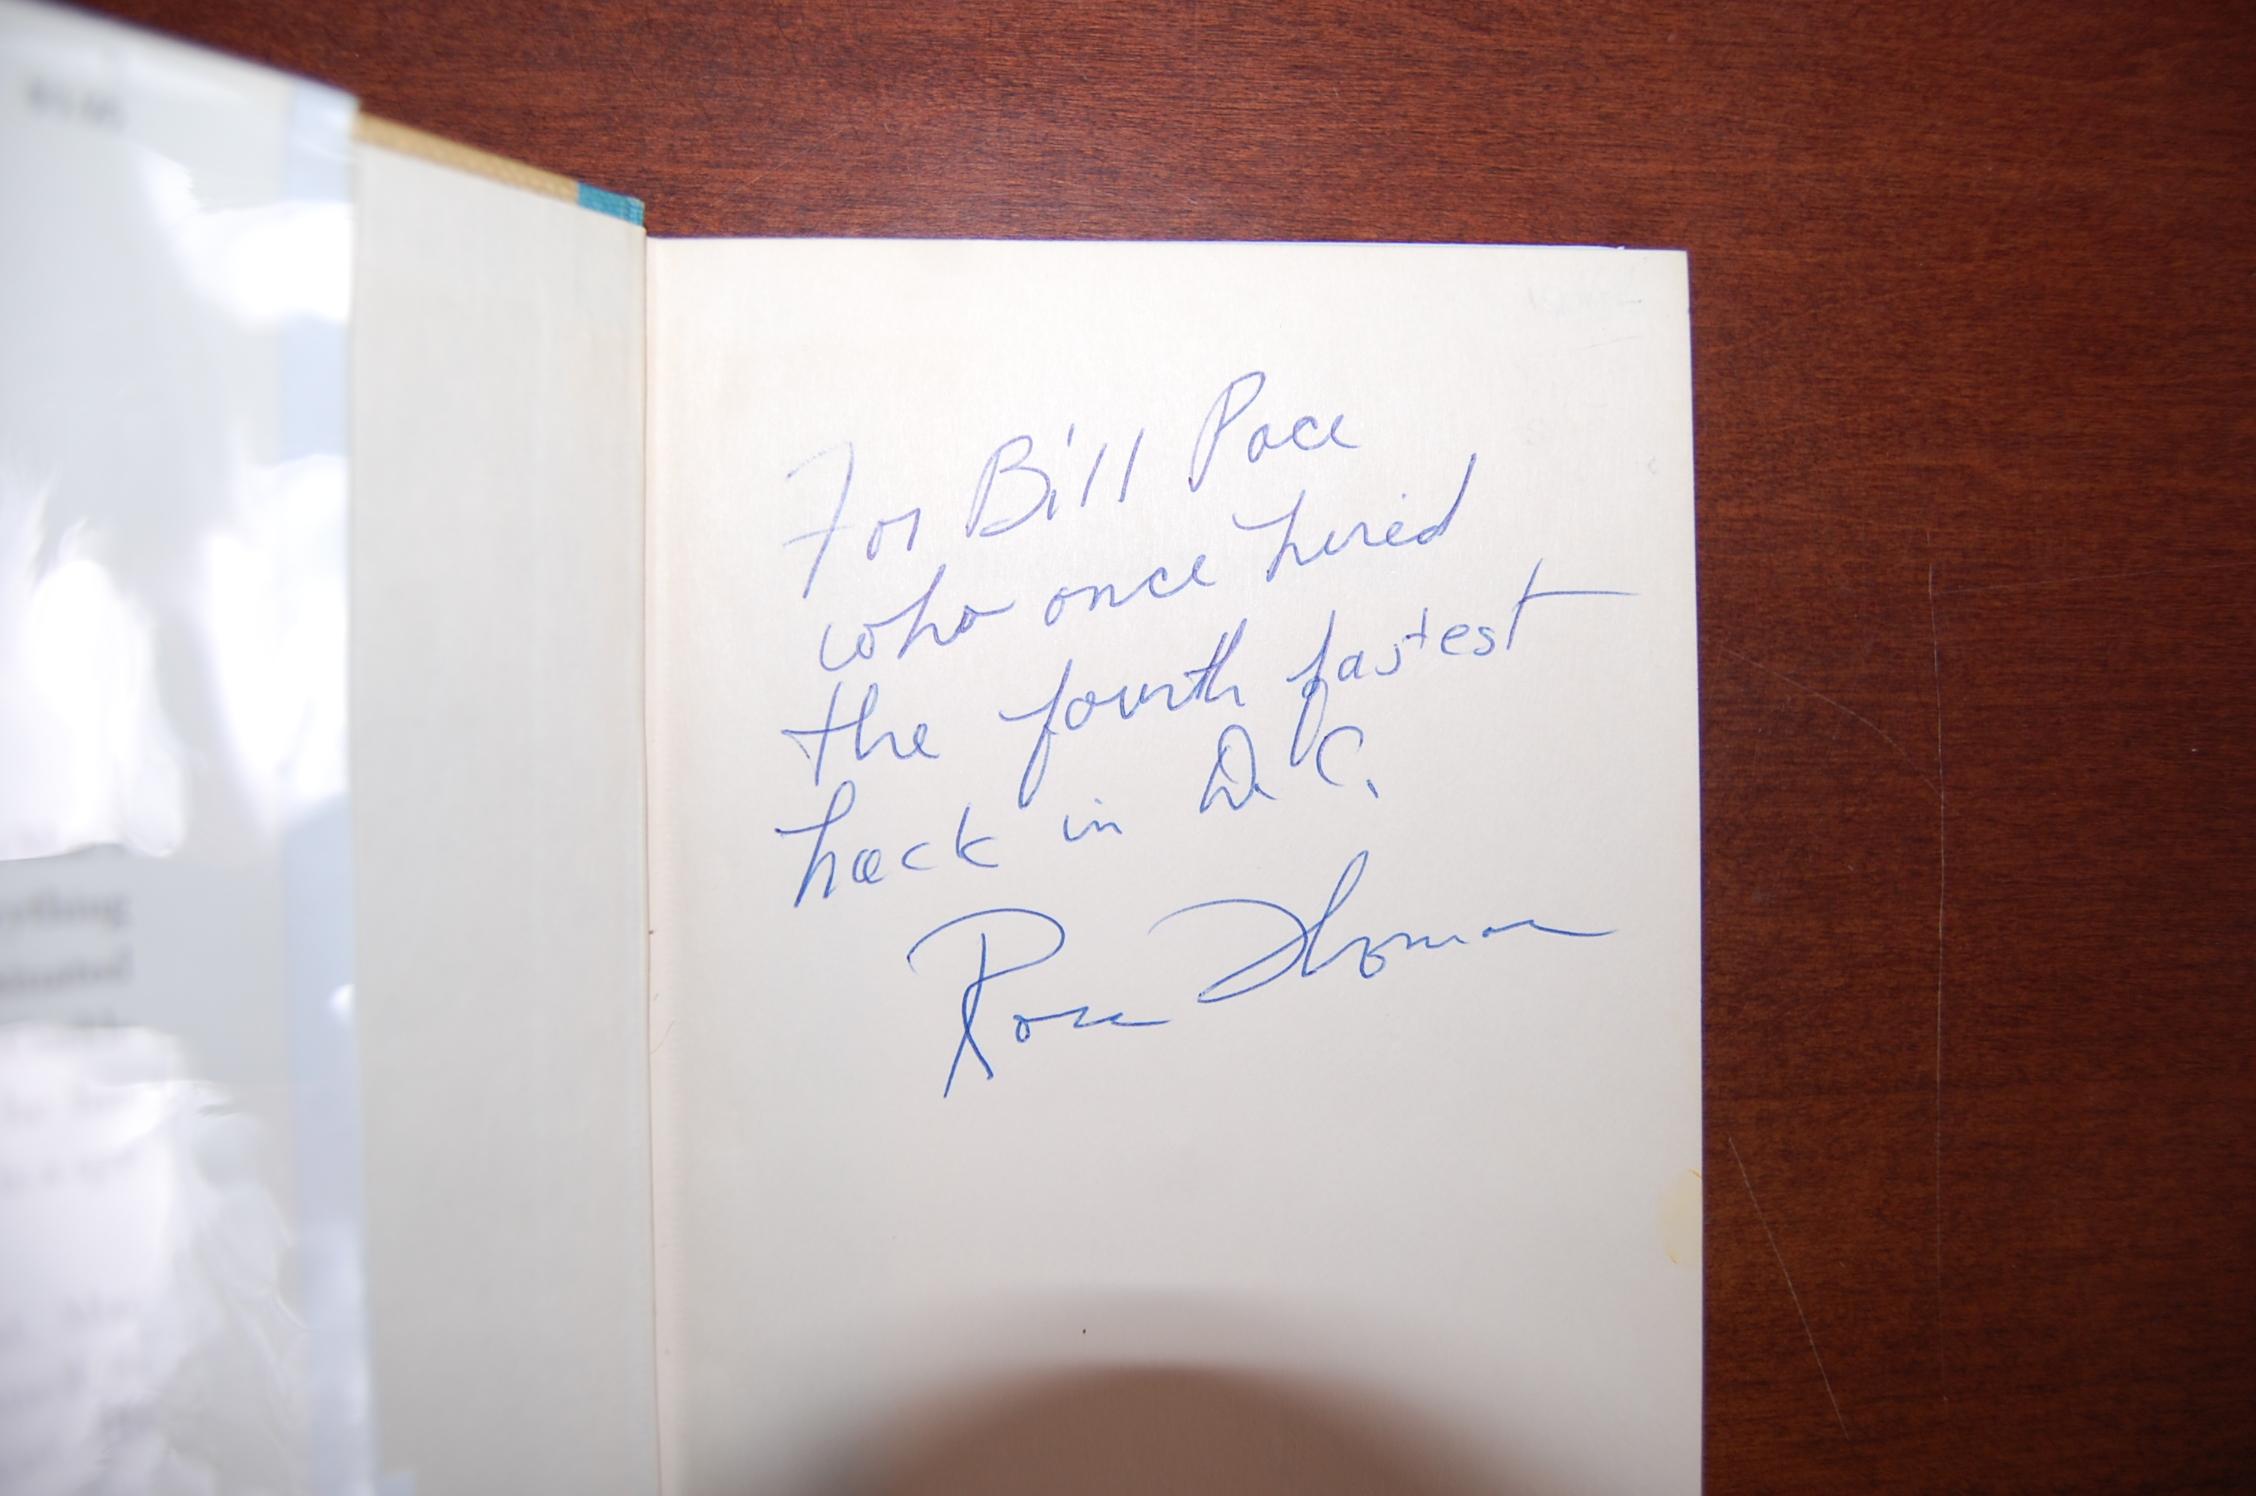 For Bill Pace
who once hired
the fourth fastest
hack in D.C.
Ross Thomas